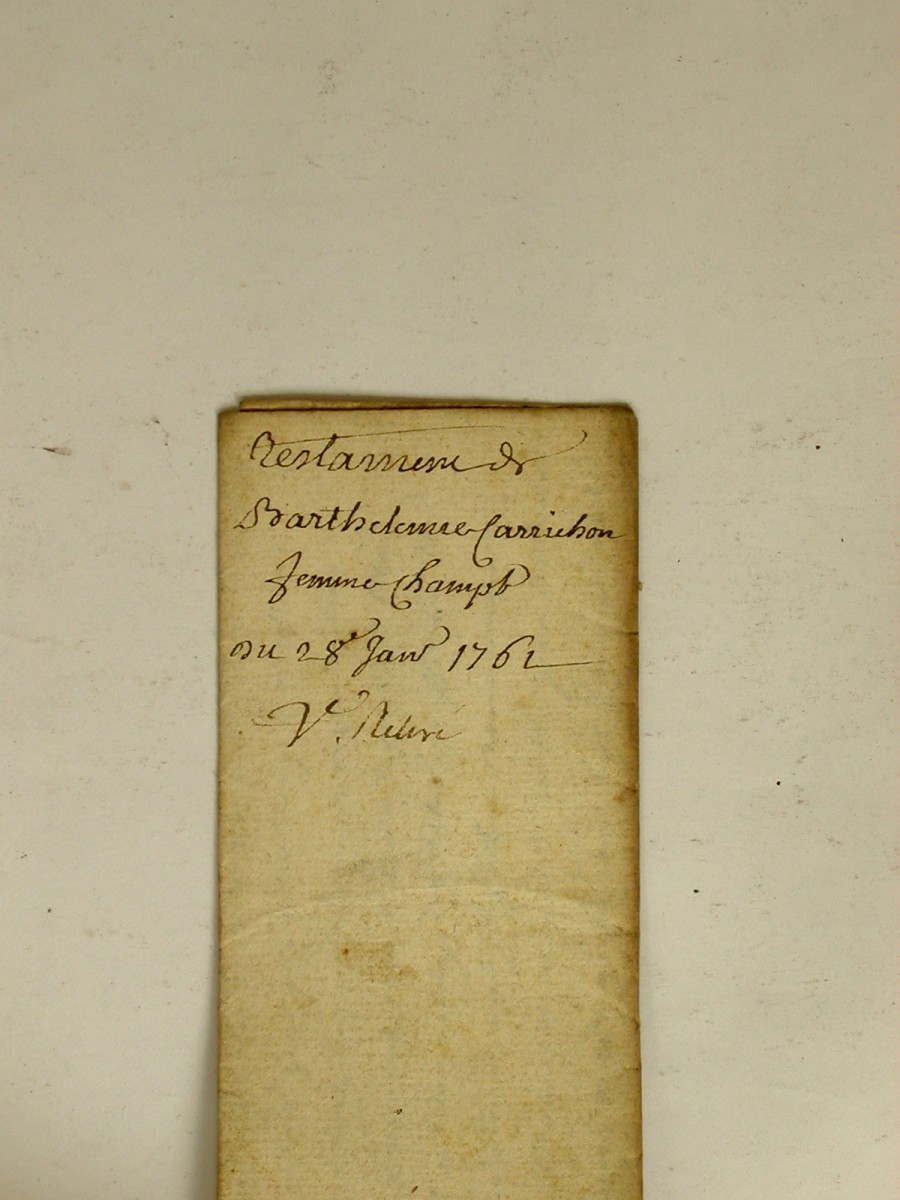 Testament de
Barthelemie Carrichon
femme Champt
du 28e Janr 1761
Ve.